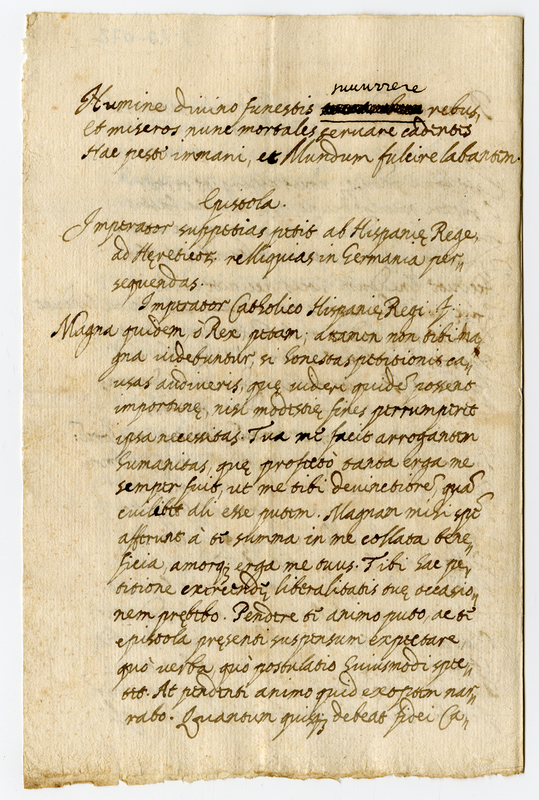 succurrere
Numine divino funestis rebus,
Et miseros nunc mortales servare cadentes
Hac peste immani, et Mundum fulcire labantem.
Epistola.
Imperator suppetias petit ab Hispanię Rege,
ad Hęreticor. relliquias in Germania per„
sequendas.
Imperator Catholico Hispanię Regi S.
Magna quidem ò Rex petam, attamen non tibi ma
gna videbuntur, si honestas petitionis ca„
usas audiveris, quę videri quidē possent
importunę, nisi modestię fines perrumperet
ipsa necessitas. Tua me facit arrogantem
humanitas, quę profectò tanta erga me
semper fuit, ut me tibi devinctiorē, quā
cuilibet alij esse putem. Magnam mihi spē
afferunt à te summa in me collata bene„
ficia, amorq; erga me tuus. Tibi hac pe„
titione exercendę liberalitatis tuę occasio„
nem prębebo. Pendere te animo puto, ac te
epistola pręsenti suspensum expectare,
quò verba, quò postulatio huiusmodi spe„
ctet. At pendenti animo quid expostem nar„
rabo. Quantum quisq; debeat fidei Ca„